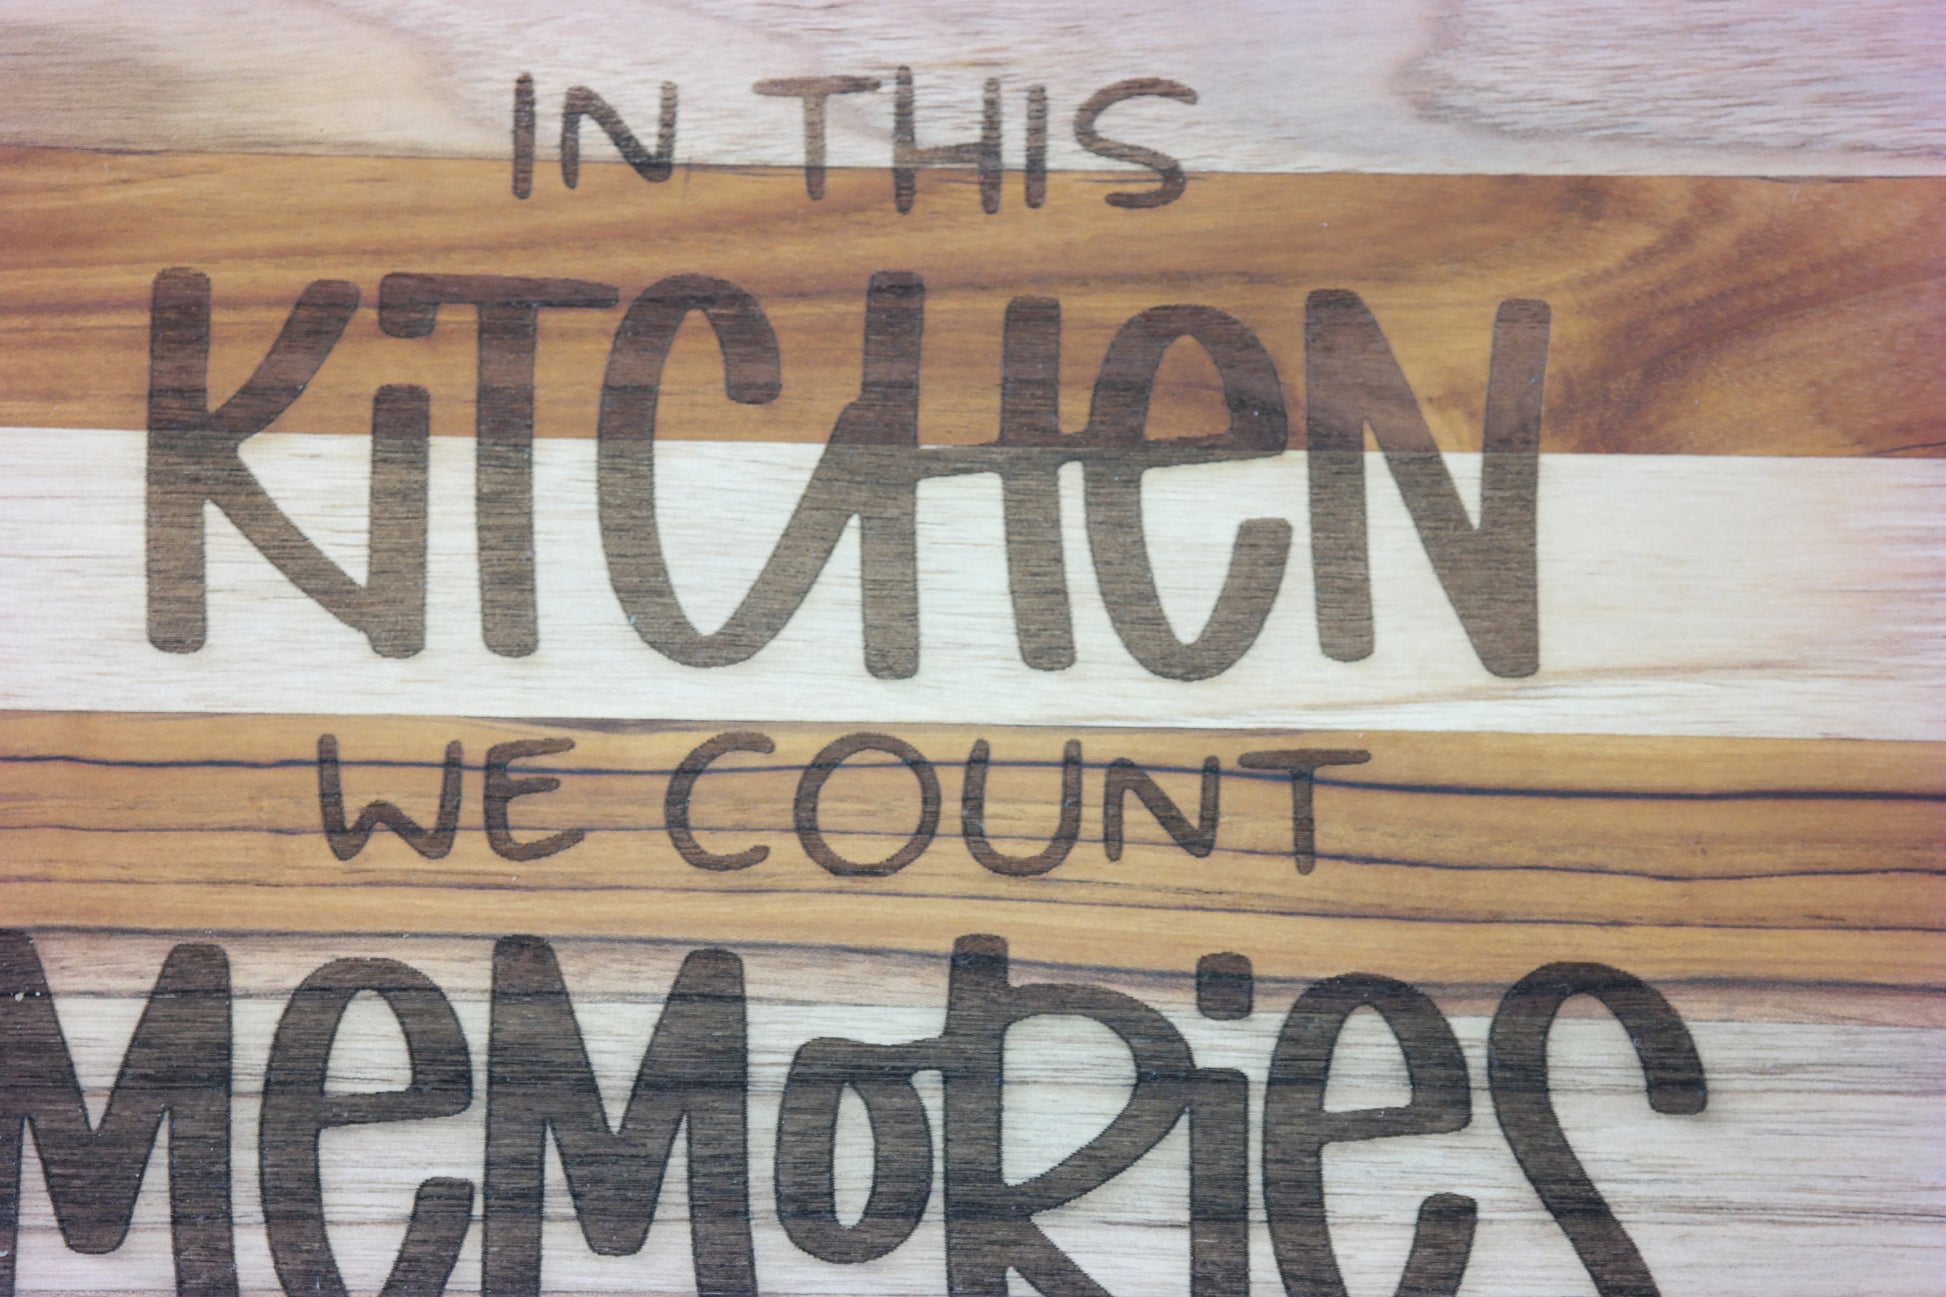 IN THIS
KiTCHeN
WE COUNT
MeMoRieS